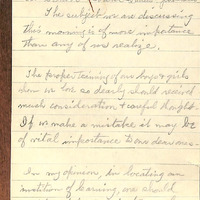 The subject we are discussing
this morning is of more importance
than any of us realize.
The proper training of our boys & girls
whom we love so dearly should receive
much consideration & careful thought.
If we make a mistake it may be
of vital importance to our dear ones.
In my opinion, in locating an
institution of learning, one should